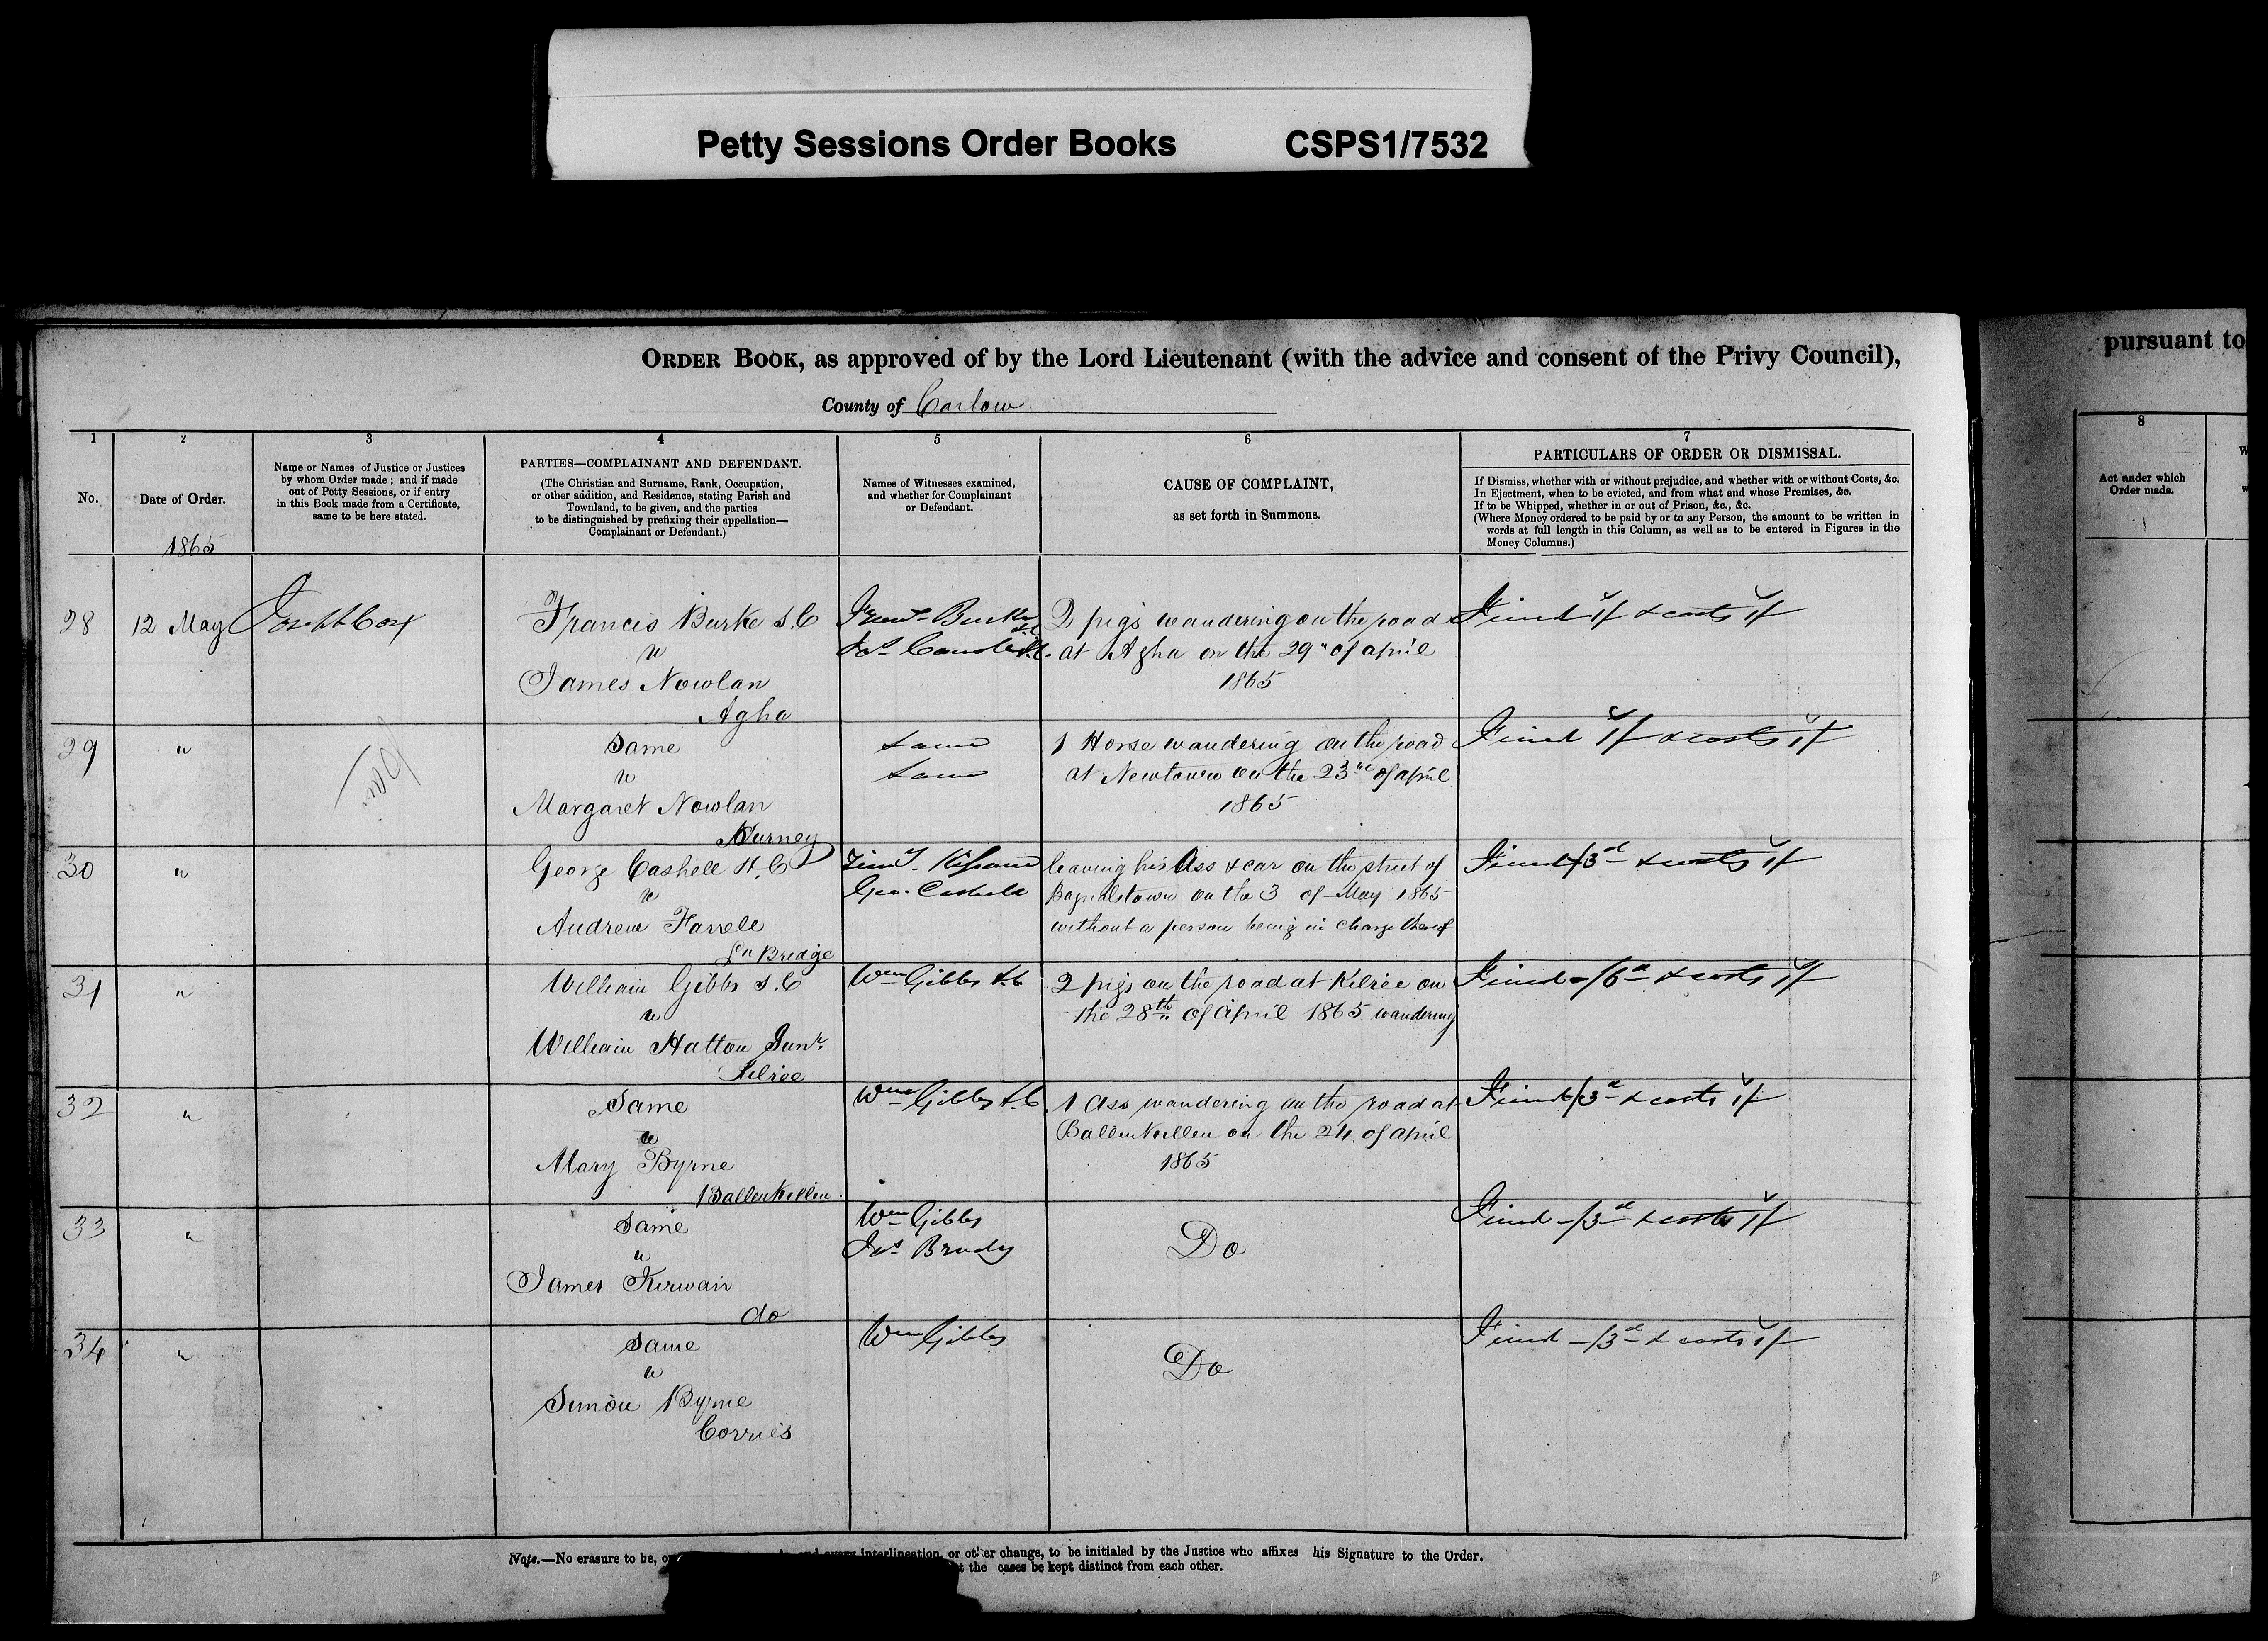 Petty Sessions Order Books CSPS1/7532
ORDER BOOK, as approved of by the Lord Lieutenant (with the advice and consent of the Privy Council),
pursuant to
County of Carlow
1 2 3 4 5 6 7 8
No.
Date of Order.
1865
Name or Names of Justice or Justices
by whom Order made; and if made
out of Petty Sessions, or if entry
in this Book made from a Certificate,
same to be here stated.
PARTIES—COMPLAINANT AND DEFENDANT.
(The Christian and Surname, Rank, Occupation,
or other addition, and Residence, stating Parish and
Townland, to be given, and the parties
to be distinguished by prefixing their appellation—
Complainant or Defendant.)
Names of Witnesses examined,
and whether for Complainant
or Defendant.
CAUSE OF COMPLAINT,
as set forth in Summons.
PARTICULARS OF ORDER OR DISMISSAL.
If Dismiss, whether with or without prejudice, and whether with or without Costs, &c.
In Ejectment, when to be evicted, and from what and whose Premises, &c.
If to be Whipped, whether in or out of Prison, &c., &c.
(Where Money ordered to be paid by or to any Person, the amount to be written in
words at full length in this Column, as well as to be entered in Figures in the
Money Columns.)
Act under which
Order made.
28
12 May
Joseph Cox
Francis Burke S.C
v
James Nowlan
Agha
Burke
2 pigs wandering on the road
at Agha on the 29" of april
1865
Fined 1/ & costs 1/
29
"
Same
v
Margaret Nowlan
Nurney
Same
Same
1 Horse wandering on the road
at Newtown on the 23rd of april
1865
Fined 1/ & costs 1/
30
"
George Cashell H.C
v
Andrew Farrell
Ln Bridge
Geo. Cashell
leaving his Ass & car on the street of
Bagnalstown on the 3 of May 1865
without a person being in charge thereof
Fined -/3d & costs 1/
31
"
William Gibbs S.C
v
William Hatton Junr.
Kilree
Wm Gibbs S.C
2 pigs on the road at Kilree on
the 28th of April 1865 wandering
Fined -/6d & costs 1/
32
"
Same
v
Mary Byrne
Ballenkillen
Wm Gibbs S.C
1 Ass wandering on the road at
Ballenkillen on the 24 of april
1865
Fined -/3d & costs 1/
33
"
Same
v
James Kirwan
do
Wm Gibbs
Jas Brady
Do
Fined -/3d & costs 1/
34
"
Same
v
Simon Byrne
Corries
Wm Gibbs
Do
Fined -/3d & costs 1/
Note.—No erasure to be, every interlineation, or other change, to be initialed by the Justice who affixes his Signature to the Order.
the cases be kept distinct from each other.